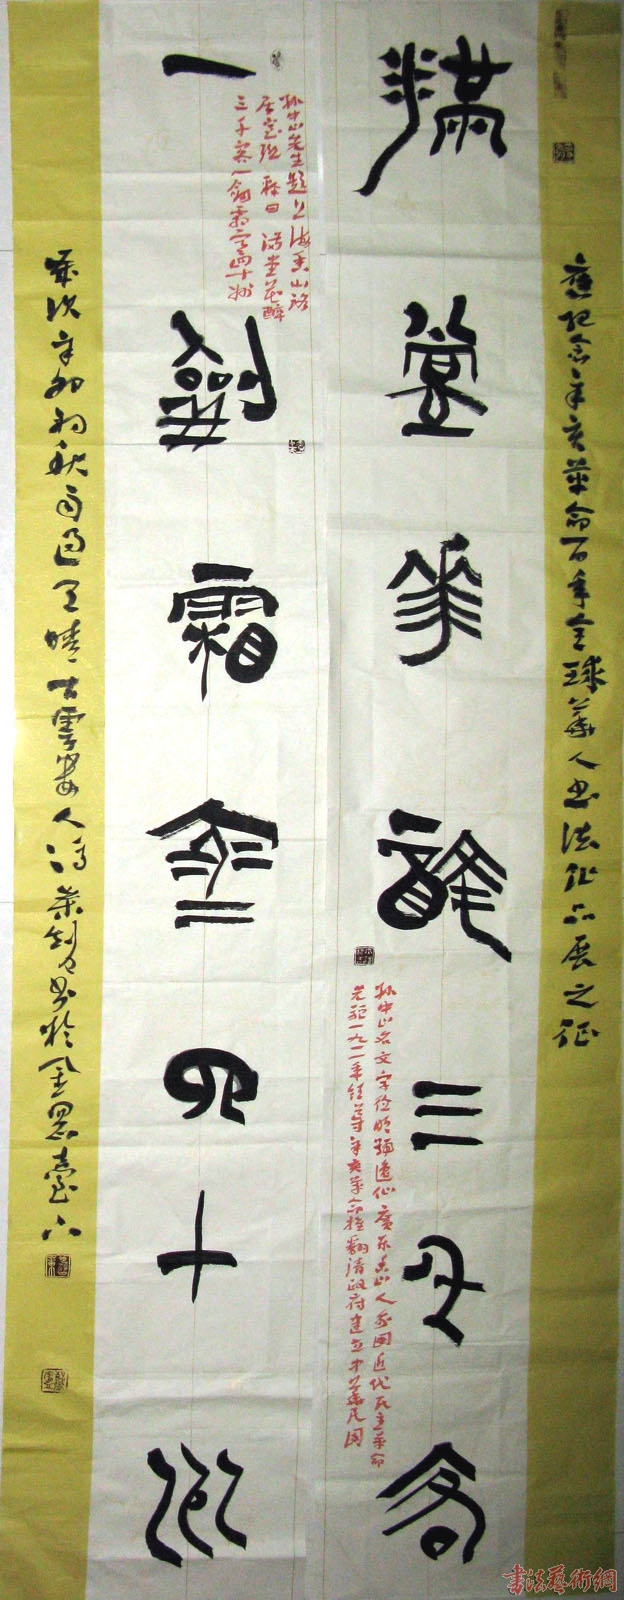 满堂花醉三千客
一剑霜寒四十州
應纪念辛亥革命百年全球華人书法作品展之征
孙中山名文字德明号逸仙广东香山人我国近代民主革命
先驱一九一一年领导辛亥革命推翻清政府建立中華民国
孙中山先生题上海香山路
居室联 释曰 满堂花醉
三千客一劍霜寒四十州
歲次辛卯初秋雨过天晴
書法藝術網